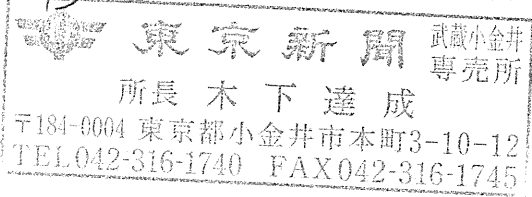 東京新聞 武蔵小金井
専売所
所長 木下達成
〒184-0004 東京都小金井市本町3-10-12
TEL042-316-1740 FAX042-316-1745